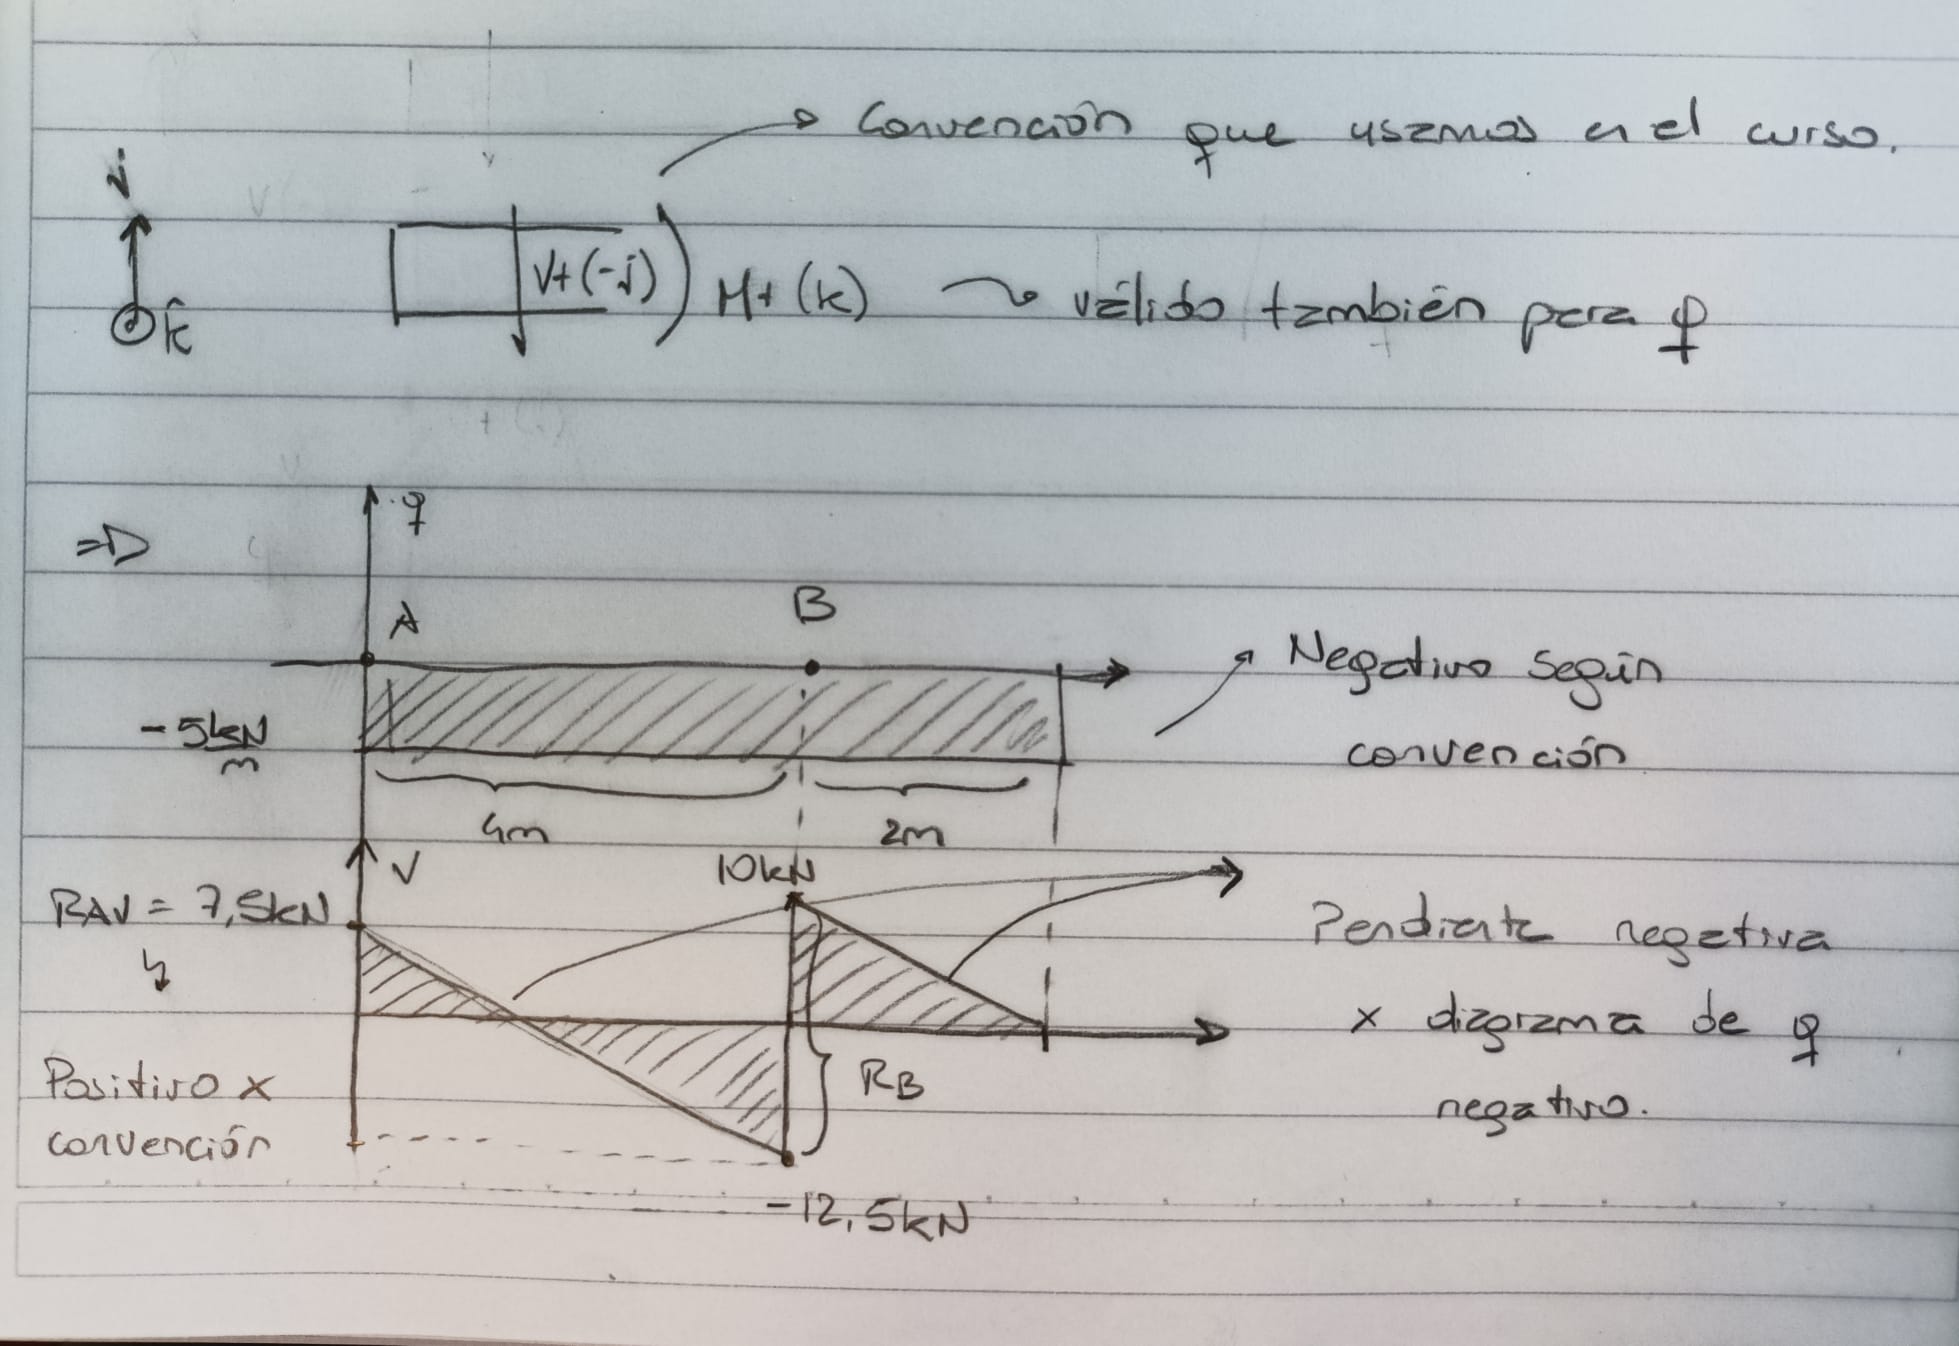 Convención que usamos en el curso.
j
V+(-j) M+(k) válido también para q
k̂
=D
q
A B
Negativo según
-5kN/m
convención
4m 2m
V 10kN
RAV = 7,5kN
Pendiente negativa
x diagrama de q
Positivo x
RB
negativo.
convención
-12,5kN